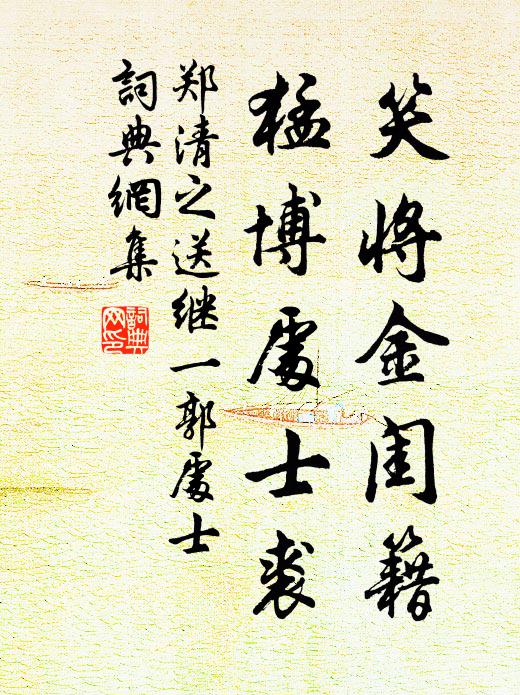 笑將金闺籍
猛博處士裘
郑清之送继一郭處士
詞典網集
詞典
网印